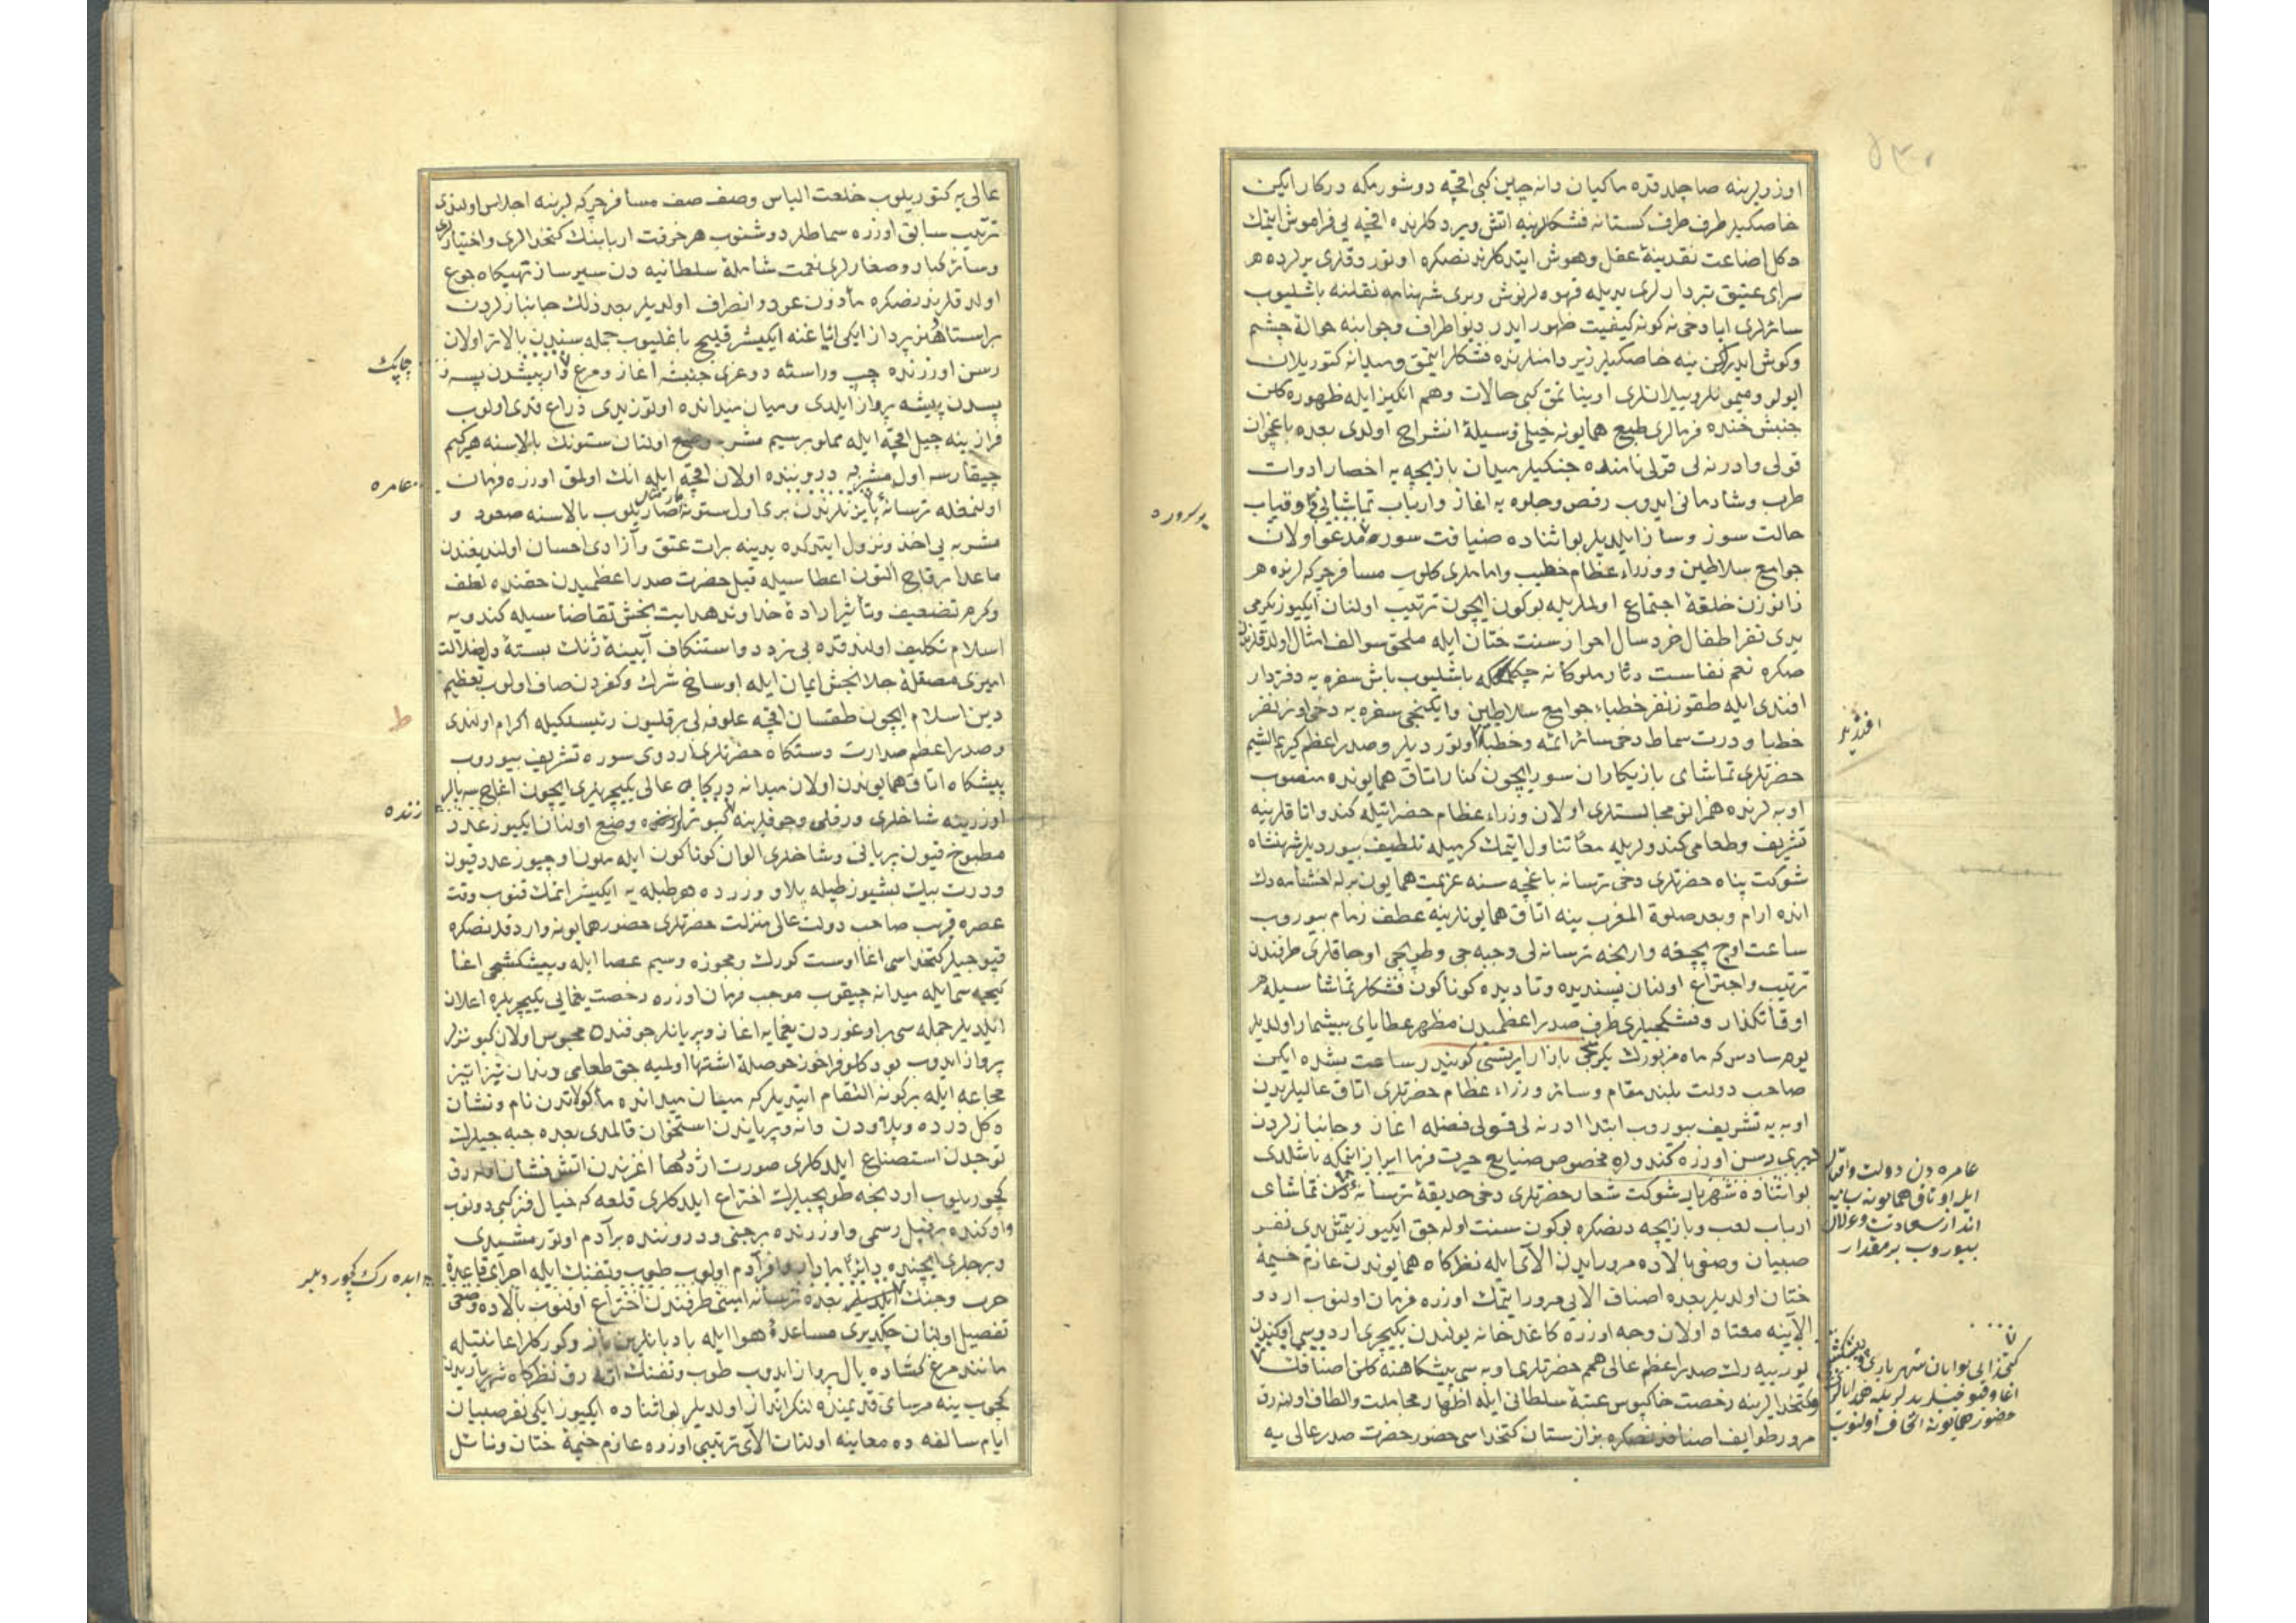 اوزرلرینه صاچلدقده ماکیان دانه چین کبی اقچه دوشورمکه درکار ایکن
خاصکیلر طرف طرف کستانه فشنکلرینه اتش ویردکلرنده اقچه یی فراموش ایتمک
دکل اضاعت نقدینهٔ عقل وهوش ایتدکلرندنصکره اوتوردقلری یرلرده هر
سرای عتیق تبردارلری یدیله قهوه لر نوش وبری شهنامه نقلنه باشلیوب
سائرلری ایا دخی نه کونه کیفیت ظهور ایدر دیو اطراف وجوانبه حوالهٔ چشم
وکوش ایدرکن ینه خاصکیلر زیر دامنلرنده فشنکلر ایتمق ومیدانه کتوریلان
ایولر ومیمونلر وییلانلری اویناتمق کبی حالات وهم انکیز ایله ظهوره کلن
جنبش خنده فرمالری طبع همایونه خیلی وسیلهٔ انشراح اولدی بعده باغچوان
قولی وادرنه لی قولی نامنده چنکیلر میدان بازیچه یه احضار ادوات
طرب وشادمانی ایدوب رقص وجلوه یه اغاز وارباب تماشایی وقیاب
حالت سوز وساز ایلدیلر بو اثناده ضیافت سوره مدعو اولان
جوامع سلاطین ووزراء عظام خطیب واماملری کلوب مسافر چرکه لرنده هر
زانوزن حلقهٔ اجتماع اولملریله بوکون ایچون ترتیب اولنان ایکیوز یکرمی
یدی نفر اطفال خردسال احراز سنت ختان ایله ملحق سوالف امثال اولدقلرندن
صکره نعم نفاست دثار ملوکانه چکلمکه باشلیوب باش سفره یه دفتردار
افندی ایله طقوز نفر خطباء جوامع سلاطین وایکنجی سفره یه دخی اون نفر
خطبا ودرت سماط دخی سائر ائمه وخطبا اوتوردیلر وصدر اعظم کریم الشیم
حضرتلری تماشای بازیکاران سور ایچون کنار اتاق همایونده منصوب
اوبه لرنده همزانوی مجالستلری اولان وزراء عظام حضراتیله کندو اتاقلرینه
تشریف وطعامی کندولریله معا تناول ایتمک کرمیله تلطیف بیوردیلر شهنشاه
شوکت پناه حضرتلری دخی ترسانه باغچه سنه عزیمت همایون برله اخشامه دک
انده ارام وبعد صلوة المغرب ینه اتاق همایونلرینه عطف زمام بیوروب
ساعت اوچ بچغه وارنجه ترسانه لی وجبه جی وطوپجی اوجاقلری طرفندن
ترتیب واختراع اولنان پسندیده ونادیده کوناکون فشنکلر تماشاسیله
اوقاتکذار وفشنکجیلری طرف صدر اعظمیدن مظهر عطایای بیشمار اولدیلر
یوم سادس که ماه مزبورک یکرمنجی بازار ایرتسی کونیدر ساعت بشده ایکن
صاحب دولت بلند مقام وسائر وزراء عظام حضرتلری اتاق عالیلریدن
اوبه یه تشریف بیوروب ابتدا ادرنه لی قولی فصله اغاز وجانبازلردن
هربری رسن اوزره کندولره مخصوص صنایع حیرت فرما ابراز ایتمکه باشلدی
بو اثناده شهریار شوکت شعار حضرتلری دخی حدیقهٔ ترسانه تماشای
ارباب لعب وبازیچه دنصکره بوکون سنت اوله جق ایکیوز یتمش یدی نفر
صبیان وصفی بالاده مرور ایدن الآی ایله نظرکاه همایوندن عازم خیمهٔ
ختان اولدیلر بعده اصناف الایی مرور ایتمک اوزره فرمان اولنوب اردو
الآینه معتاد اولان وجه اوزره کاغدخانه یولندن یکیچری اردوسی
بوربیه رک صدر اعظم عالی همم حضرتلری اوبه سی پیشکاهنه کلن اصنافک
وکتخدالرینه رخصت خاکبوس عتبهٔ سلطانی ایله اظهار مجاملت والطاف اولنه رق
مرور طوایف اصنافدنصکره بزازستان کتخداسی حضور حضرت صدر عالی یه
بوسروره
افندیلر
عامره دن دولت واقبال
ایله اوتاق همایونه سایه
انداز سعادت وعلال
بیوروب بر مقدار
کتخدالی بوابان شهریاری وپیشکش
اغا وقپوجیلر
حضور همایونه اتحاف اولنوب
عالی یه کتوریلوب خلعت الباس وصف صف مسافر چرکه لرینه اجلاس اولندی
ترتیب سابق اوزره سماطلر دوشنوب هر حرفت اربابنک کتخدالری واختیارلری
وسائر کبار وصغارلری نعمت شاملهٔ سلطانیه دن سیرساز تهیکاه جوع
اولدقلرندنصکره مأذون عود وانصراف اولدیلر بعد ذلک جانبازلردن
بر استاد هنرپرداز ایکی ایاغنه ایکیشر قلیج باغلیوب جمله سندن بالاتر اولان
رسن اوزرنده چپ وراسته دوغری جنبشه اغاز ومرغ وار پیشدن پسه
پسدن پیشه پرواز ایلدی ومیان میدانده اوتوز یدی ذراع قدی اولوب
فرازینه چیل اقچه ایله مملو برسیم مشربه وضع اولنان ستونک بالاسنه هرکیم
چیقارسه اول مشربه درونندە اولان اقچه ایله انک اولمق اوزره فرمان
اولنمغله ترسانه پایزنلرندن بری اول ستونه صاریلوب بالاسنه صعود و
مشربه یی اخذ ونزول ایتدکده یدینه برات عتق وآزادی احسان اولندیغندن
ماعدا برقاچ التون اعطاسیله قبل حضرت صدر اعظمیدن حقنده لطف
وکرم تضعیف وتأثیر ارادهٔ خداوند هدایت بخش تقاضاسیله کندویه
اسلام تکلیف اولندقده بی تردد واستنکاف آیینهٔ ژنک بستهٔ دل ضلالت
امیزی مصقلهٔ جلابخش ایمان ایله اوساخ شرک وکفردن صاف اولوب تعظیم
دین اسلام ایچون طقسان اقچه علوفه لی برقلیون رئیسلکیله اکرام اولندی
وصدر اعظم صدارت دستکاه حضرتلری اردوی سوره تشریف بیوروب
پیشکاه اتاق همایوندن اولان میدانه درکاه عالی یکیچریلری ایچون اغاج سه پالر
اوزرینه شاخلری ورقلی وجوفلرینه کبوترلر وضع اولنان ایکیوز عدد
مطبوخ قیون بریانی وشاخلری الوان کوناکون ایله ملون اوچیوز عدد قیون
ودرت بیک بشیوز طبله پلاو وزرده هر طبله یه ایکیشر اتمک قنوب وقت
عصره قریب صاحب دولت عالی منزلت حضرتلری حضور همایونه واردقدنصکره
قپوجیلر کتخداسی اغا اوست کورک ومجوزه وسیم عصا ایله وپیشکشجی اغا
کیجه سی ایله میدانه چیقوب موجب فرمان اوزره رخصت یغمایی یکیچریلره اعلان
ایلدیلر جمله سی براوغوردن یغمایه اغاز وبریانلر جوفنده محبوس اولان کبوترلر
پرواز ایدوب بودکلو فراخور حوصلهٔ اشتها اولمیه جق طعامی دندان تیزاتیز
مجاعه ایله برکونه التقام ایتدیلر که میان میدانده مأکولاتدن نام ونشان
دکل درده وپلاودن دانه وبریاندن استخوان قالمدی بعده جبه جیلرک
توجدن استصناع ایلدکلری صورت اژدرها اغزندن اتش فشان اوله رق
کچوریلوب اردنجه طوپجیلرک اختراع ایلدکلری قلعه که خیال فنر کبی دونوب
واوکنده بر فیل رسمی واوزرنده برجنی ودروننده بر آدم اوتورمشیدی
وبرجلری ایچنده آدم اولوب طوپ وتفنک ایله اجرای قاعدهٔ
حرب وجنک ایلدیلر بعده ترسانه امینی طرفندن اختراع اولنوب بالاده وصفی
تفصیل اولنان چکدیری مساعدهٔ هوا ایله بادبانلرین باز وکورکلر اعانتیله
مانند مرغ کشاده بال پرواز ایدوب طوپ وتفنک اته رق نظرکاه شهریاریدن
کچوب ینه مرسای قدیمنده لنکرانداز اولدیلر بو اثناده ایکیوز ایکی نفر صبیان
ایام سالفه ده معاینه اولنان الآی ترتیبی اوزره عازم خیمهٔ ختان ونائل
چاپک
عامره
ط
زنده
ایده رک کچوردیلر